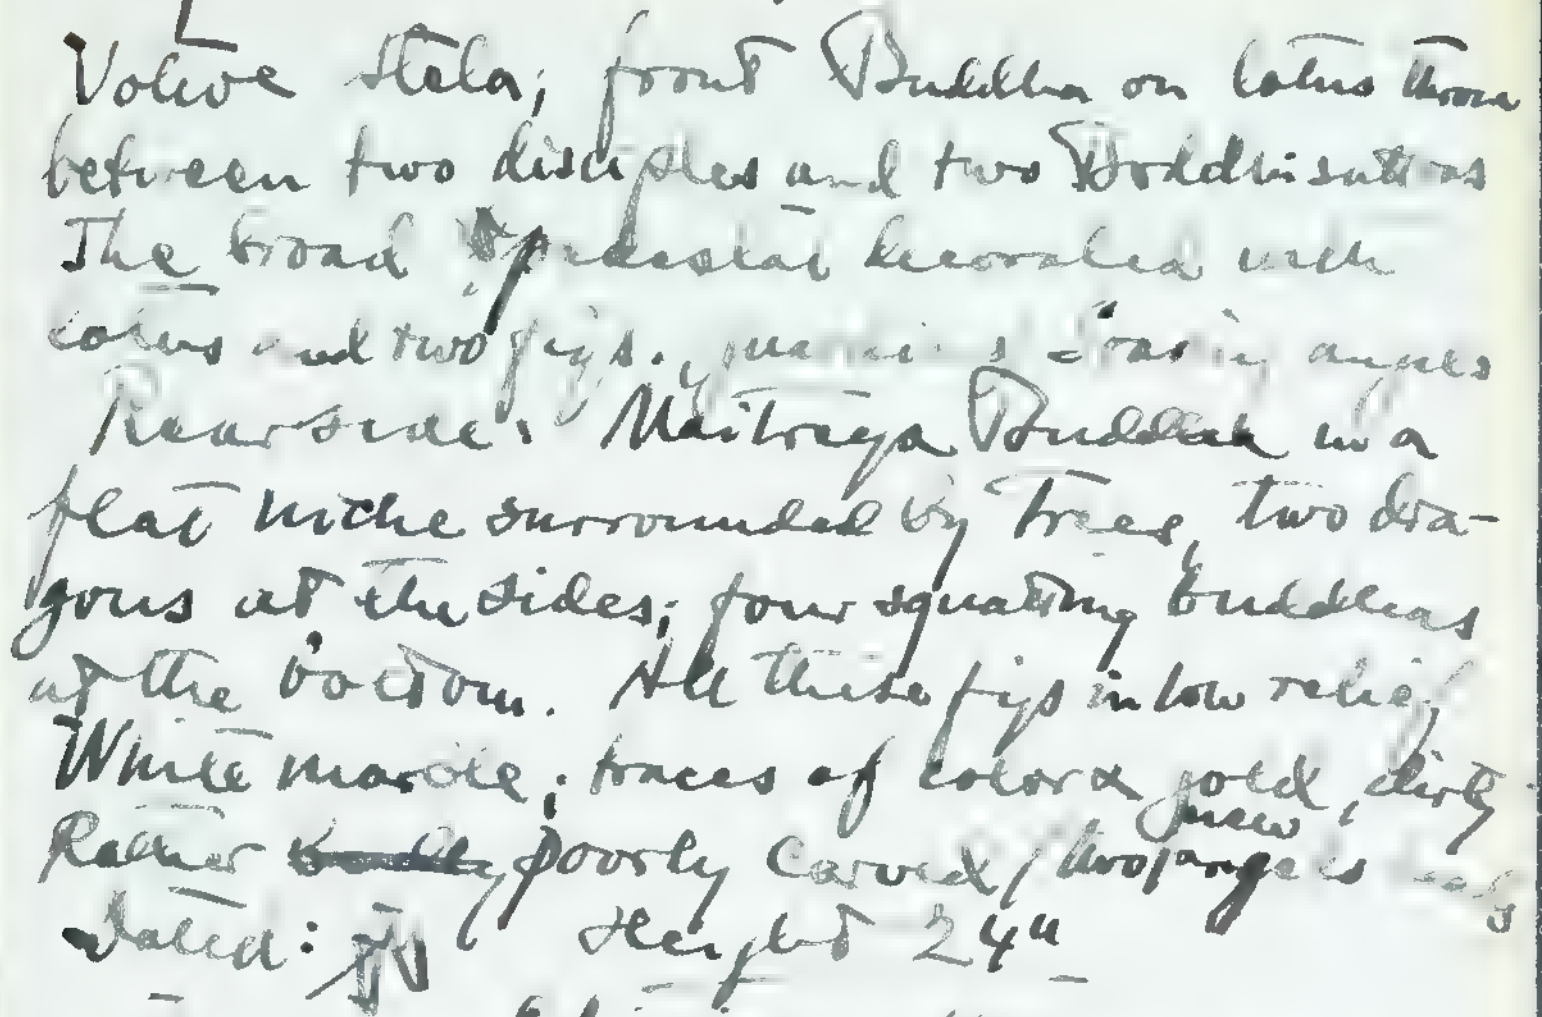 Votive stela; front Buddha on lotus throne
between two disciples and two Boddhisattvas
The broad pedestal decorated with
lotus and two figs. angels
Rear side: Maitreya Buddha in a
flat niche surrounded by trees, two dra-
gons at the sides; four squatting buddhas
at the bottom. All these figs in low relief
White marble; traces of color & gold, dirty
new
Rather poorly carved, two angels
Dated: Height 24"